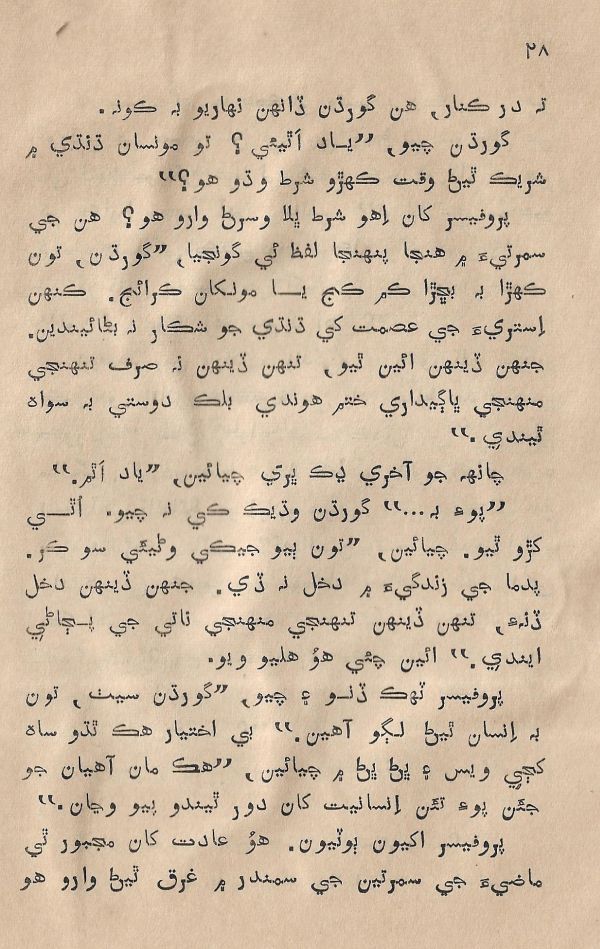 ۲۸
تہ در ڪنار, هن گورڌن ڏانهن نهاريو بہ ڪونہ.
گورڌن چيو, ”يـاد اَٿيئي؟ تو مونسان ڌنڌي ۾
شريڪ ٿيڻ وقت ڪهڙو شرط وڌو هو؟“
پروفيسر کان اِهو شرط ڀلا وسرڻ وارو هو؟ هن جي
سمرتيءَ ۾ هنجا پنهنجا لفظ ئي گونجيا, ”گورڌن, تون
ڪهڙا بہ بڇڙا ڪم ڪج يـــا مونکان ڪرائج. ڪنهن
اِستريءَ جي عصمت کي ڌنڌي جو شڪار نہ بڻائيندين.
جنهن ڏينهن ائين ٿيو, تنهن ڏينهن نہ صرف تنهنجي
منهنجي ڀاڳيداري ختم هوندي بلڪ دوستي بہ سواہ
ٿيندي.“
چانهہ جو آخري ڍڪ ڀري چيائين, ”ياد اَٿم.“
”پوءِ بہ...“ گورڌن وڌيڪ ڪي نہ چيو. اُٿـــي
کڙو ٿيو. چيائين, ”تون ٻيو جيڪي وڻيئي سو ڪر.
پدما جي زندگيءَ ۾ دخل نہ ڏي. جنهن ڏينهن دخل
ڏنہءِ, تنهن ڏينهن تنهنجي منهنجي ناتي جي پـڄاڻي
ايندي.“ ائين چئي هوُ هليو ويو.
پروفيسر ٽهڪ ڏنـو ۽ چيو, ”گورڌن سيٺ, تون
بہ اِنسان ٿيڻ لـڳو آهين.“ بي اختيار هڪ ٿڌو ساہ
کڄي ويس ۽ ڀڻ ڀڻ ۾ چيائين, ”هڪ مان آهيان جو
جئن پوءِ تئن اِنسانيت کان دور ٿيندو پيو وڃان.“
پروفيسر اکيون ٻوٽيون. هوُ عادت کان مجبور ٿي
ماضيءَ جي سمرتين جي سمندر ۾ غرق ٿيڻ وارو هو